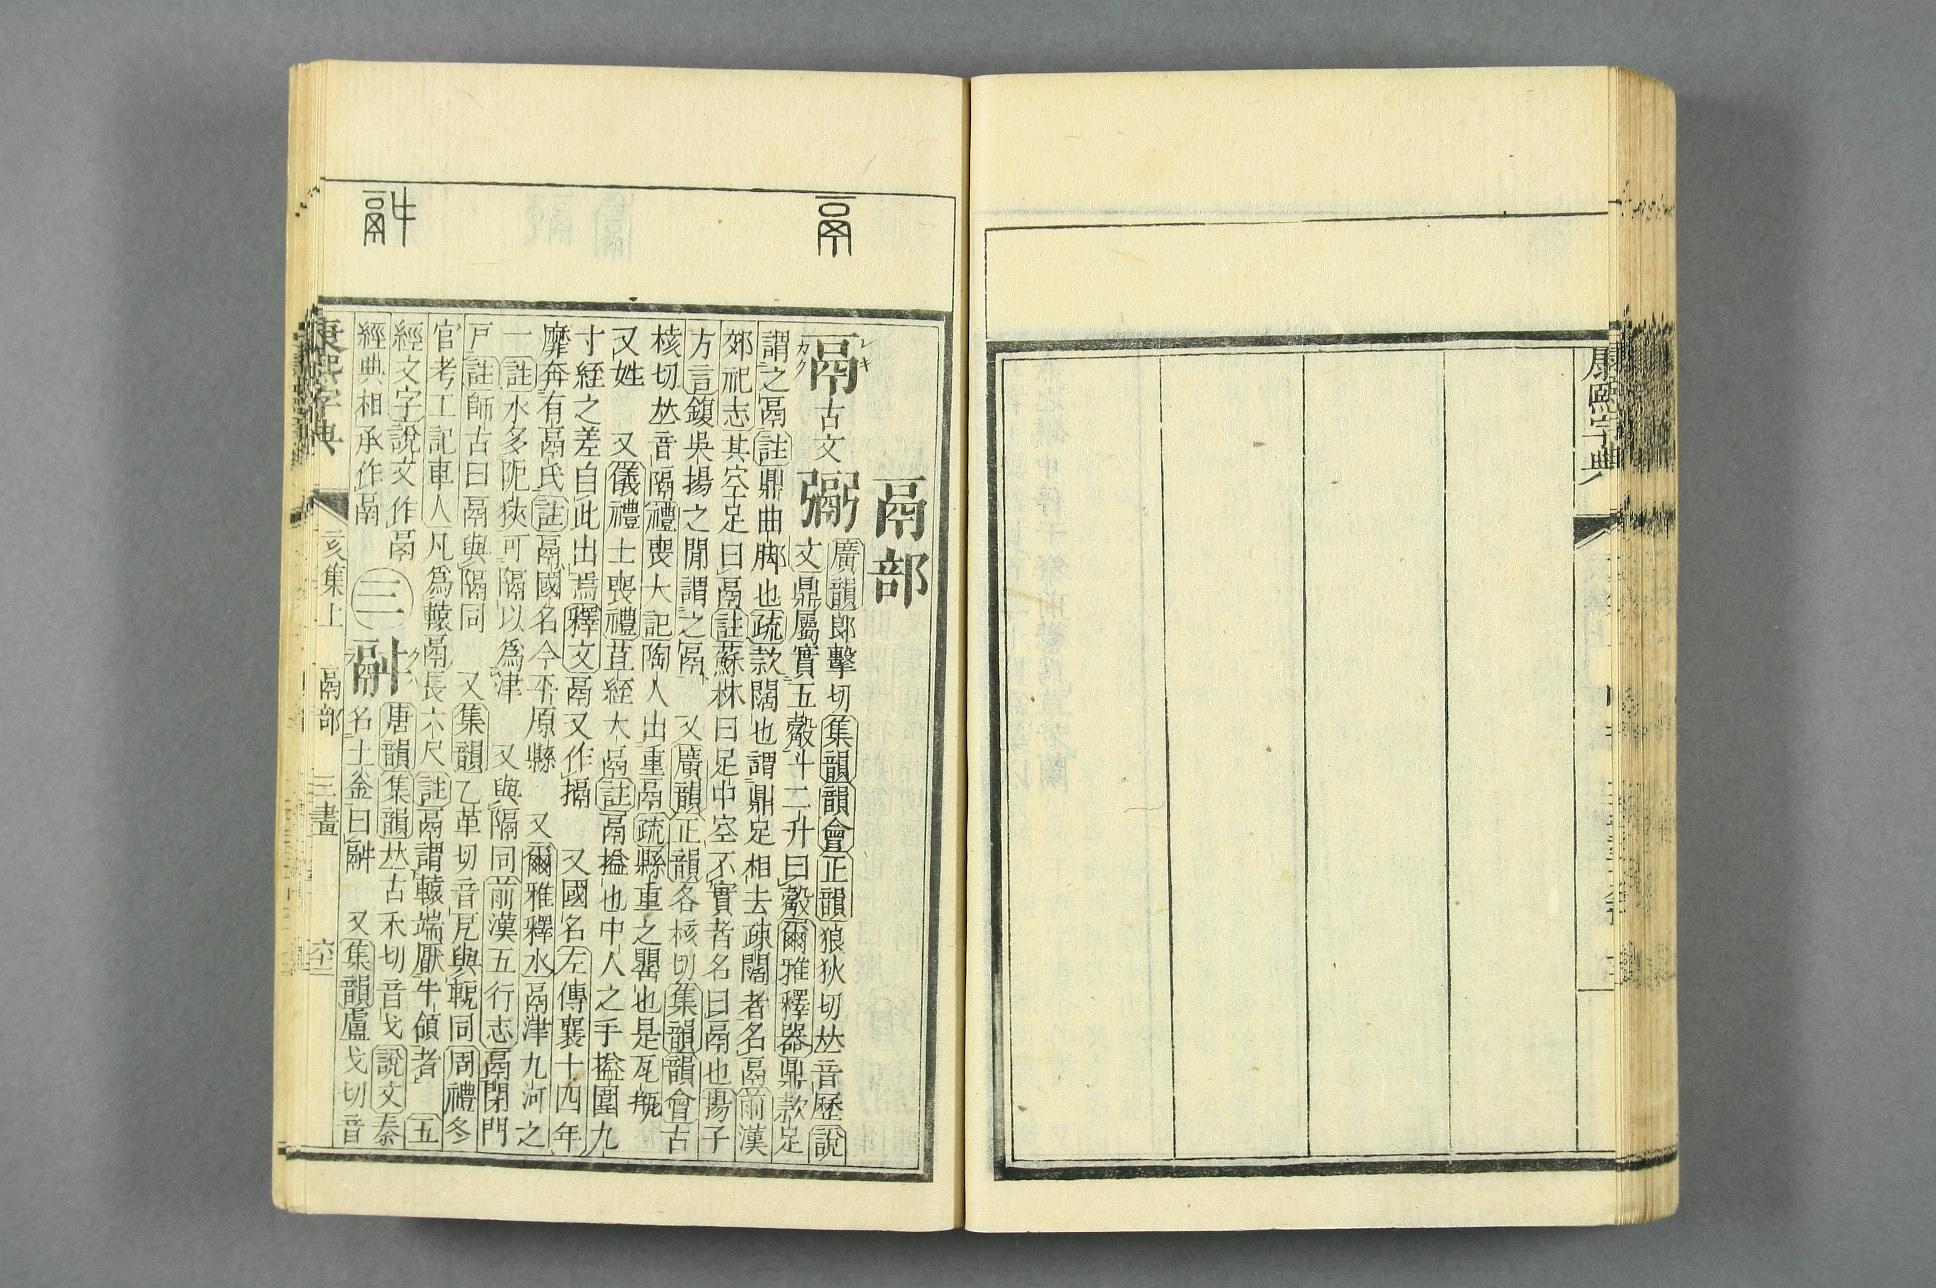 康熙字典
鬲
䰙
鬲部
鬲レキ カク古文䰜廣韻郞擊切集韻韻會正韻狼狄切𠀤音歷說
文鼎屬實五觳斗二升曰觳爾雅釋器鼎款足
謂之鬲註鼎曲腳也疏款闊也謂鼎足相去疎闊者名鬲前漢
郊祀志其空足曰鬲註蘇林曰足中空不實者名曰鬲也揚子
方言鍑吳揚之閒謂之鬲 又廣韻正韻各核切集韻韻會古
核切𠀤音隔禮喪大記陶人出重鬲疏縣重之罌也是瓦甁
又姓 又儀禮士喪禮苴絰大鬲註鬲搤也中人之手搤圍九
寸絰之差自此出焉釋文鬲又作搹 又國名左傳襄十四年
靡奔有鬲氏註鬲國名今平原縣 又爾雅釋水鬲津九河之
一註水多阨狹可隔以爲津 又與隔同前漢五行志鬲閉門
戸註師古曰鬲與隔同 又集韻乙革切音戹與軶同周禮冬
官考工記車人凡爲轅鬲長六尺註鬲謂轅端厭牛領者 五
經文字說文作鬲
經典相承作鬲
三 䰙 唐韻集韻𠀤古禾切音戈說文秦
名土釜曰䰙 又集韻盧戈切音
康熙字典 亥集上 鬲部 三畫 六一